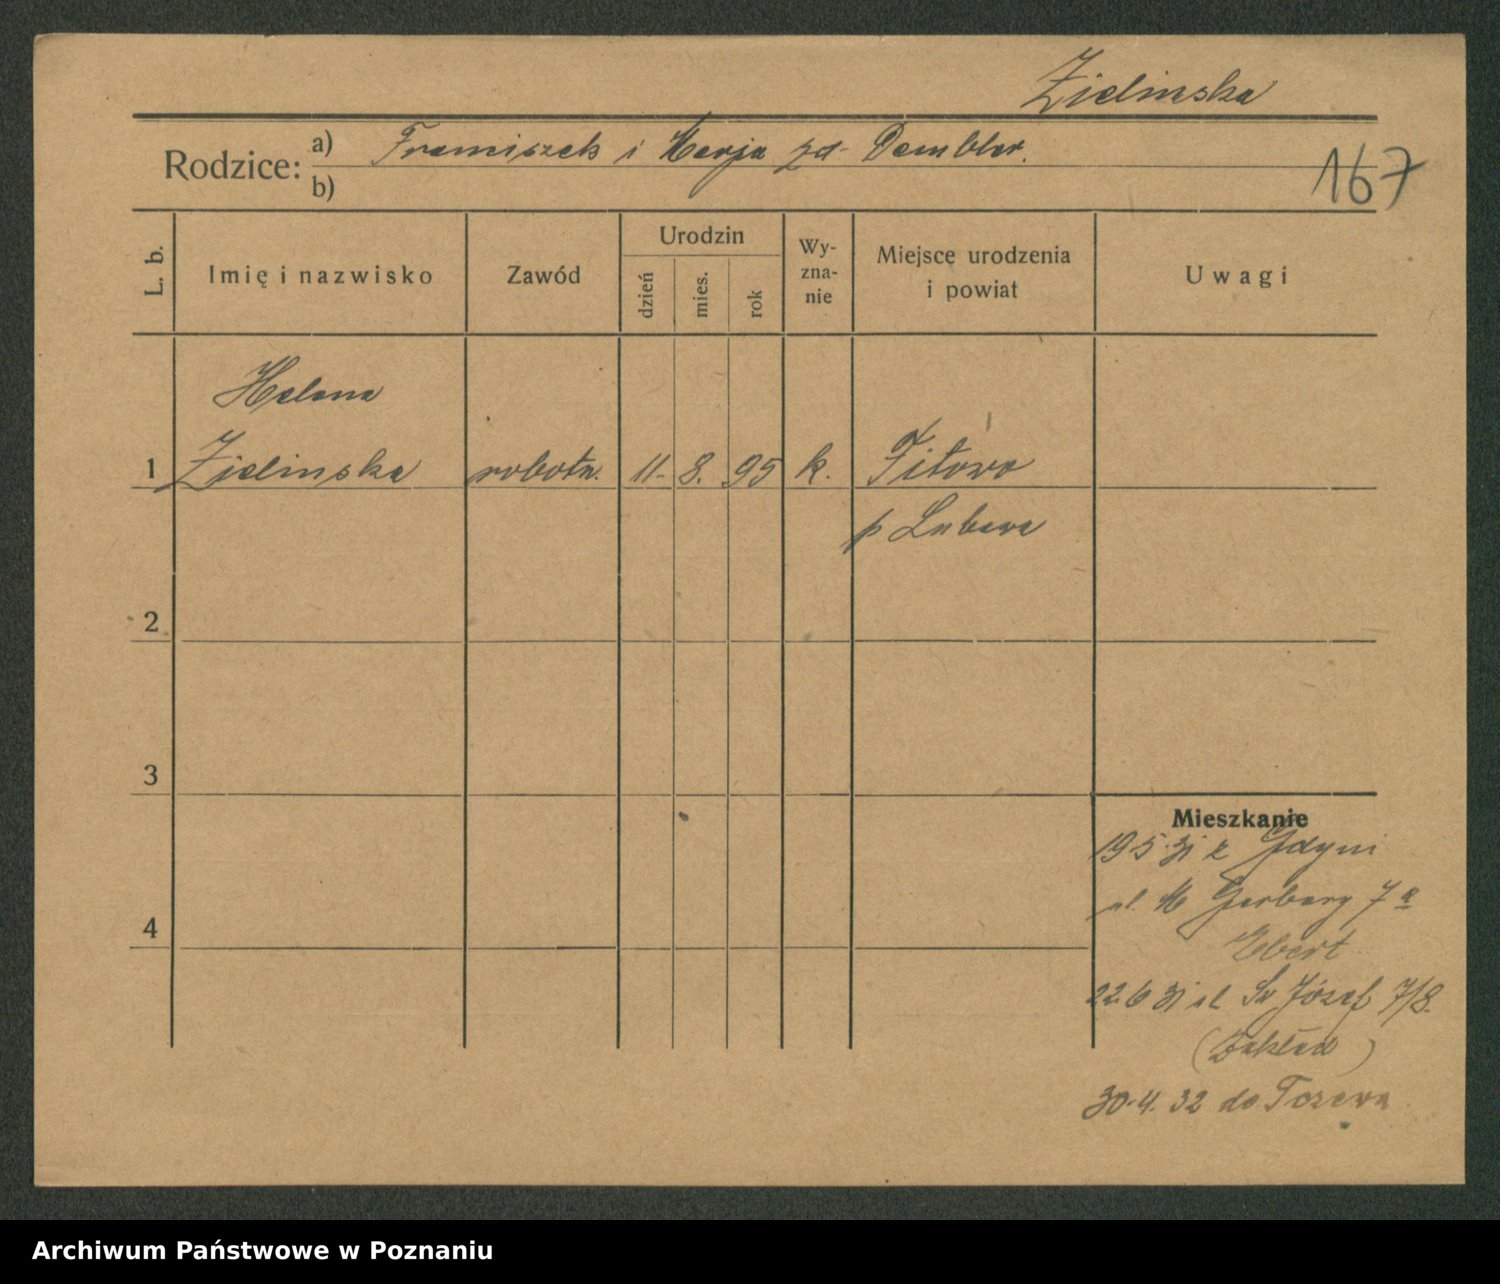 Zielinska
Rodzice: a) Franciszek i Marja zd. Dembler.
b)
167
L. b. Imię i nazwisko Zawód Urodzin dzień mies. rok Wyznanie Miejsce urodzenia i powiat Uwagi
Helena
1 Zielinska robotn. 11. 8. 95 k. Titowo
p Lubawa
2
3
Mieszkanie
19.5.31 z Gdyni
ul. M Garbary 7a
4
Ebert
22.6.31 ul Św Józef 7/8.
(Zakład)
30.4.32 do Tczewa
Archiwum Państwowe w Poznaniu